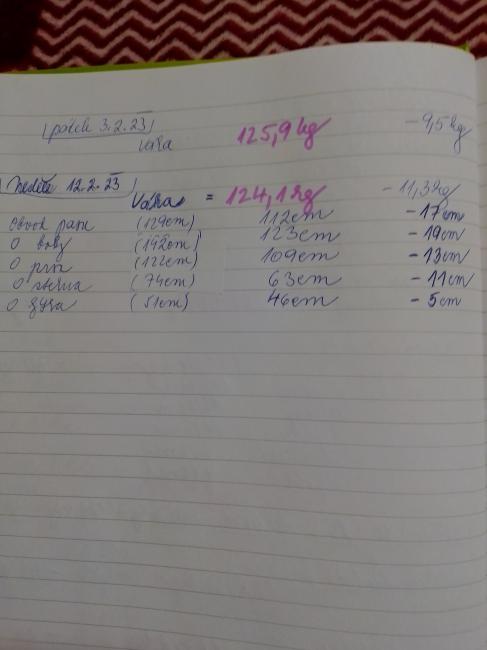 pátek 3.2.23
váha 125,9 kg -9,5 kg
Neděle 12.2.23
Váha = 124,1 kg -11,3 kg
Obvod pasu (129cm) 112cm -17cm
O boky (142cm) 123cm -19cm
O prsa (122cm) 109cm -13cm
O stehna (74cm) 63cm -11cm
O (51cm) 46cm -5cm